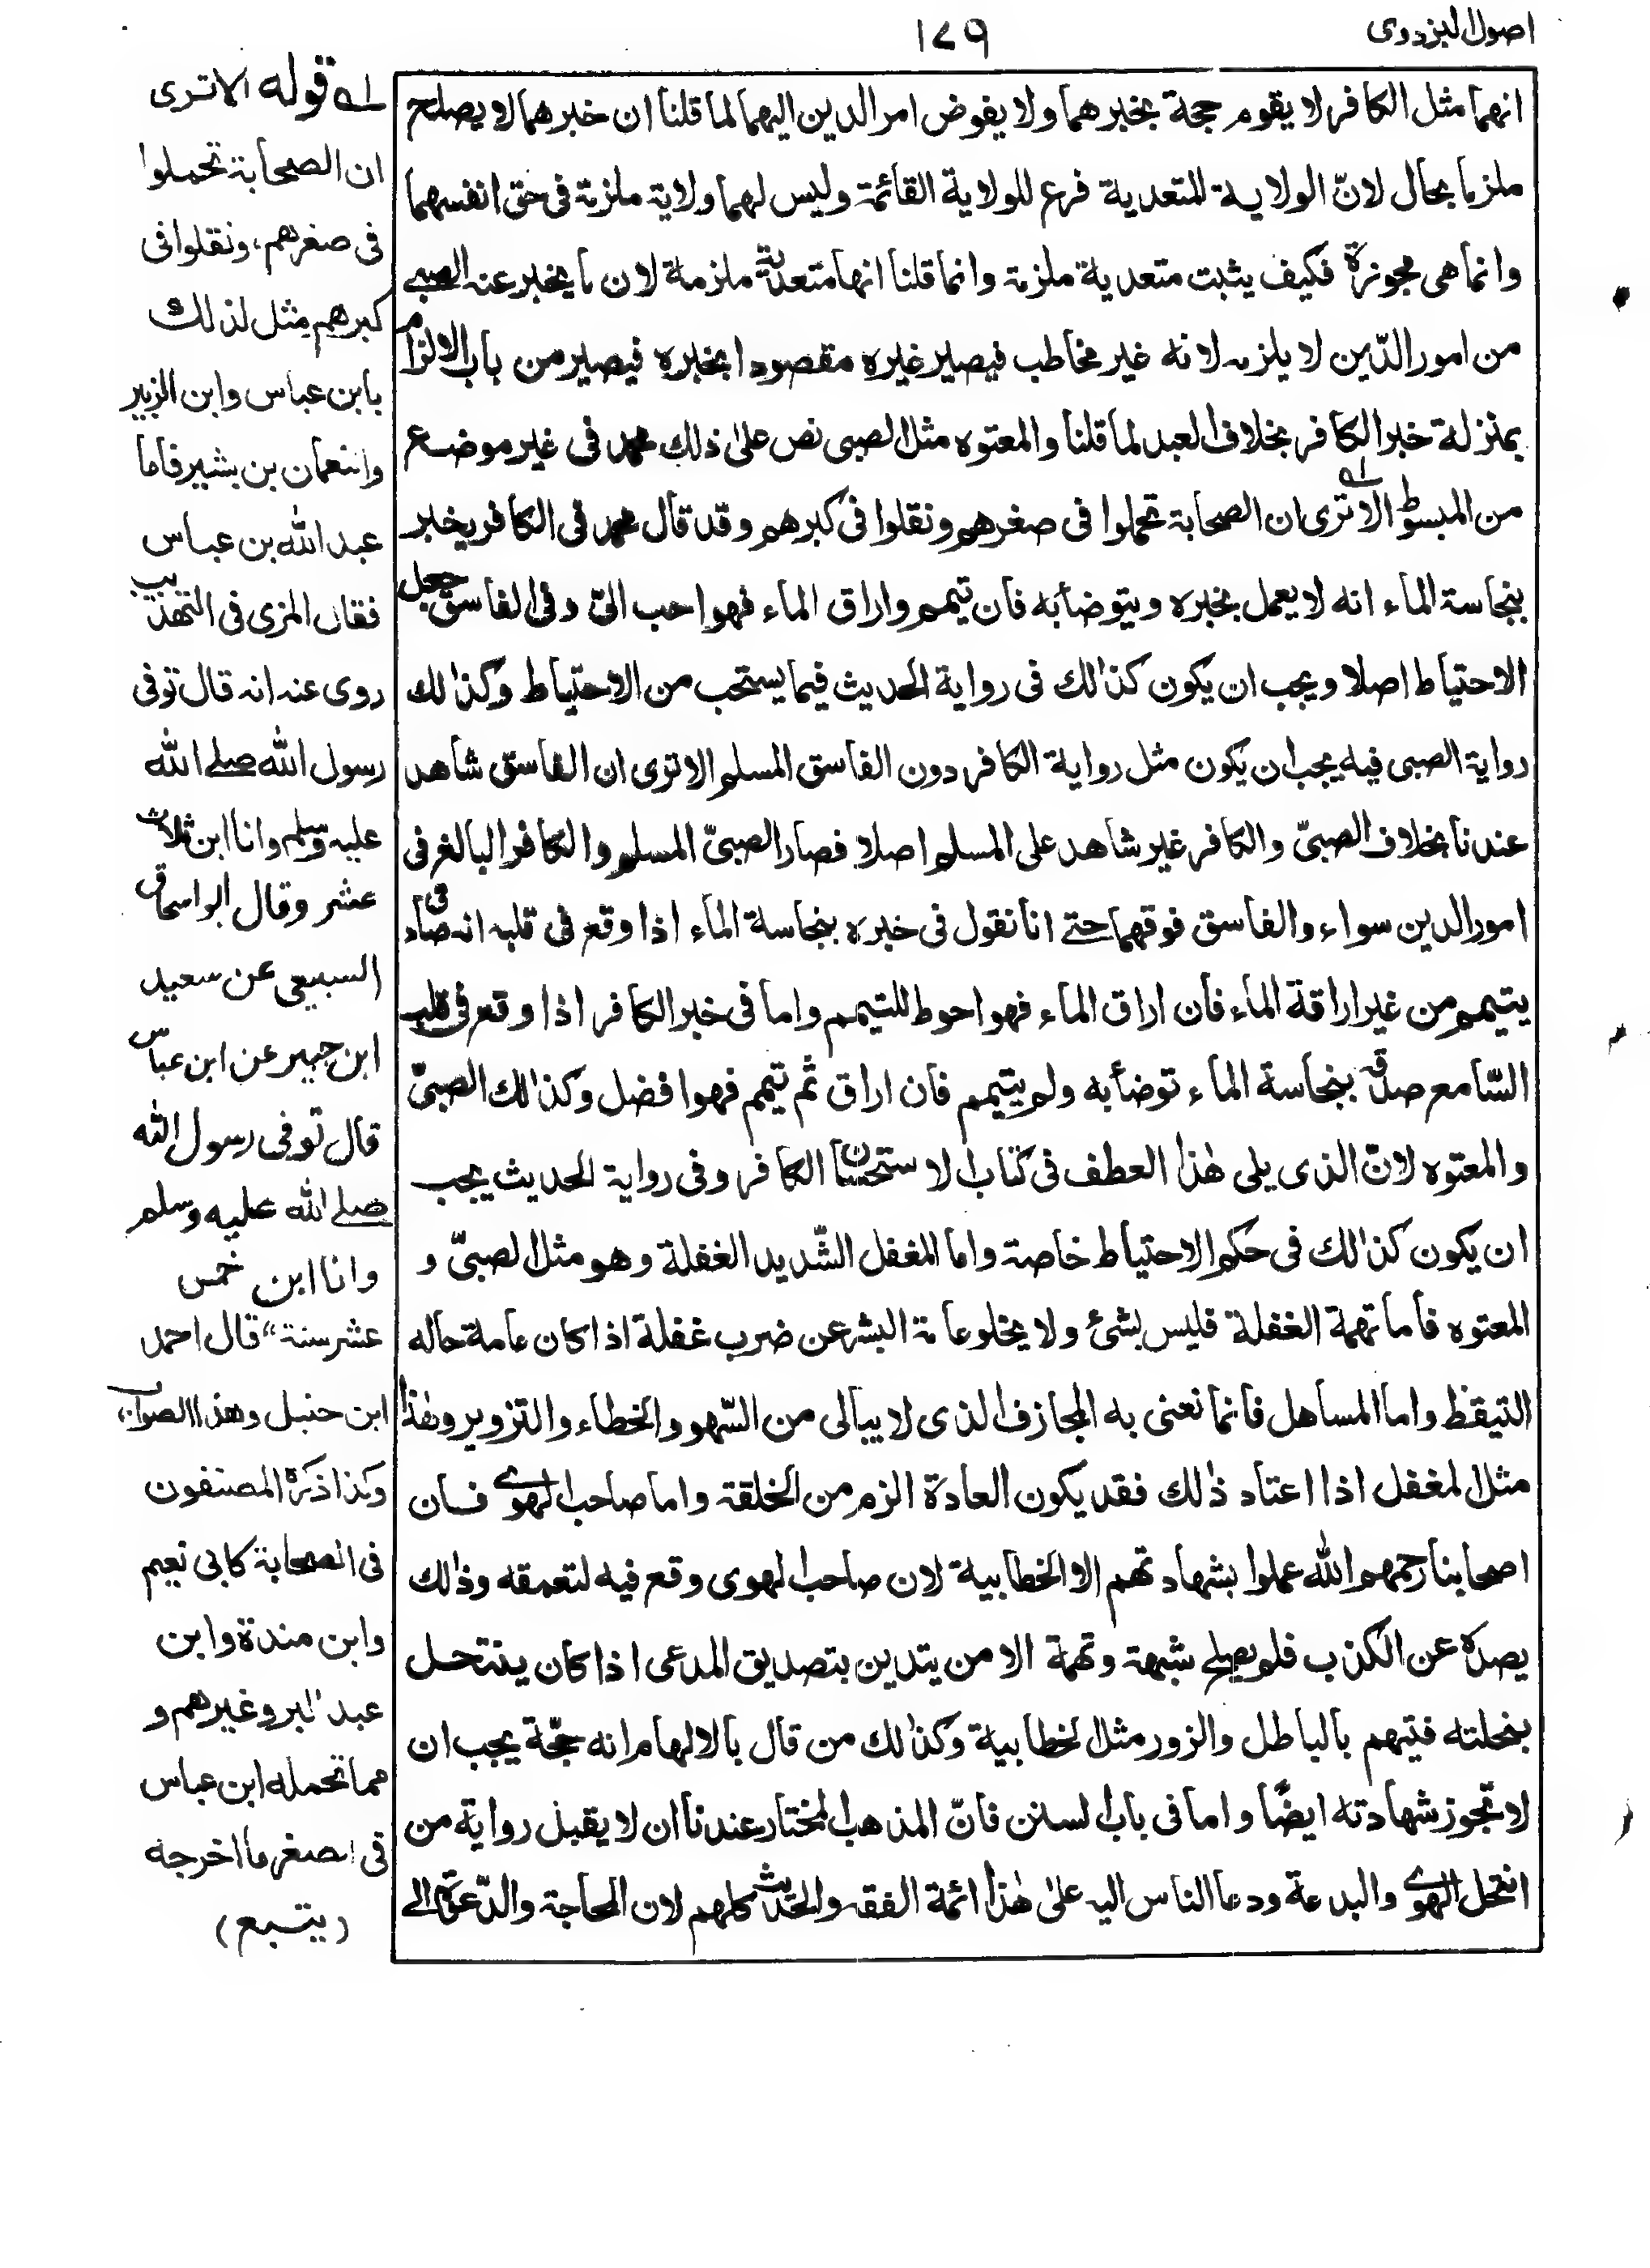 اصول البزدوى
١٧٩
انهما مثل الكافر لا يقوم حجة بخبرهما ولا يفوض امر الدين اليهما لما قلنا ان خبرهما لا يصلح
ملزما بحال لانّ الولاية المتعدية فرع للولاية القائمة وليس لهما ولاية ملزمة فى حق انفسهما
وانما هى مجوزة فكيف يثبت متعدية ملزمة وانما قلنا انها متعدية ملزمة لان ما يخبر عنه الصبى
من امور الدّين لا يلزمه لانه غير مخاطب فيصير غيره مقصودا بخبره فيصير من باب الالزام
بمنزلة خبر الكافر بخلاف العبد لما قلنا والمعتوه مثل الصبى نص على ذلك محمد فى غير موضع
من المبسوط الا ترى ان الصحابة تحملوا فى صغرهم ونقلوا فى كبرهم وقد قال محمد فى الكافر يخبر
بنجاسة الماء انه لا يعمل بخبره ويتوضأ به فان تيمم واراق الماء فهو احب الىّ وفى الفاسق جعل
الاحتياط اصلا ويجب ان يكون كذالك فى رواية الحديث فيما يستحب من الاحتياط وكذالك
رواية الصبى فيه يجب ان يكون مثل رواية الكافر دون الفاسق المسلم الا ترى ان الفاسق شاهد
عندنا بخلاف الصبىّ والكافر غير شاهد على المسلم اصلا فصار الصبىّ المسلم والكافر البالغ فى
امور الدين سواء والفاسق فوقهما حتے انا نقول فى خبره بنجاسة الماء اذا وقع فى قلبه انه صادق
يتيمم من غير اراقة الماء فان اراق الماء فهو احوط للتيمم واما فى خبر الكافر اذا وقع فى قلب
السّامع صدقه بنجاسة الماء توضأ به ولم يتيمم فان اراق ثم تيمم فهو افضل وكذالك الصبىّ
والمعتوه لانّ الذى يلى هٰذا العطف فى كتاب الاستحسان الكافر وفى رواية الحديث يجب
ان يكون كذالك فى حكم الاحتياط خاصة واما المغفل الشّديد الغفلة وهو مثل الصبىّ و
المعتوه فاما تهمة الغفلة فليس بشئ ولا يخلو عامة البشر عن ضرب غفلة اذا كان عامة حاله
التيقظ واما المساهل فانما نعنى به المجازف الذى لا يبالى من السّهو والخطاء والتزوير وهٰذا
مثل المغفل اذا اعتاد ذٰلك فقد يكون العادة الزم من الخلقة واما صاحب الهوے فان
اصحابنا رحمهم الله عملوا بشهادتهم الا الخطابية لان صاحب الهوى وقع فيه لتعمقه وذٰلك
يصده عن الكذب فلم يصلح شبهة وتهمة الا من يتدين بتصديق المدعى اذا كان ينتحل
بنحلته فيتهم بالباطل والزور مثل الخطابية وكذالك من قال بالالهام انه حجّة يجب ان
لا تجوز شهادته ايضًا واما فى باب السنن فانّ المذهب المختار عندنا ان لا يقبل رواية من
انتحل الهوے والبدعة ودعا الناس اليه علىٰ هٰذا ائمة الفقه والحديث كلهم لان المحاجة والدّعوة الے
له قوله الا ترى
ان الصحابة تحملوا
فى صغرهم، ونقلوا فى
كبرهم، مثل لذلك
بابن عباس وابن الزبير
والنعمان بن بشير فاما
عبد الله بن عباس
فقال المزى فى التهذيب
روى عنه انه قال توفى
رسول الله صلے الله
عليه وسلم وانا ابن ثلاث
عشر وقال ابو اسحاق
السبيعى عن سعيد
ابن جبير عن ابن عباس
قال توفى رسول الله
صلے الله عليه وسلم
وانا ابن خمس
عشر سنة" قال احمد
ابن حنبل وهذا الصواب،
وكذا ذكره المصنفون
فى الصحابة كابى نعيم
وابن مندة وابن
عبد البر وغيرهم و
مما تحمله ابن عباس
فى الصغر ما اخرجه
(يتبع)